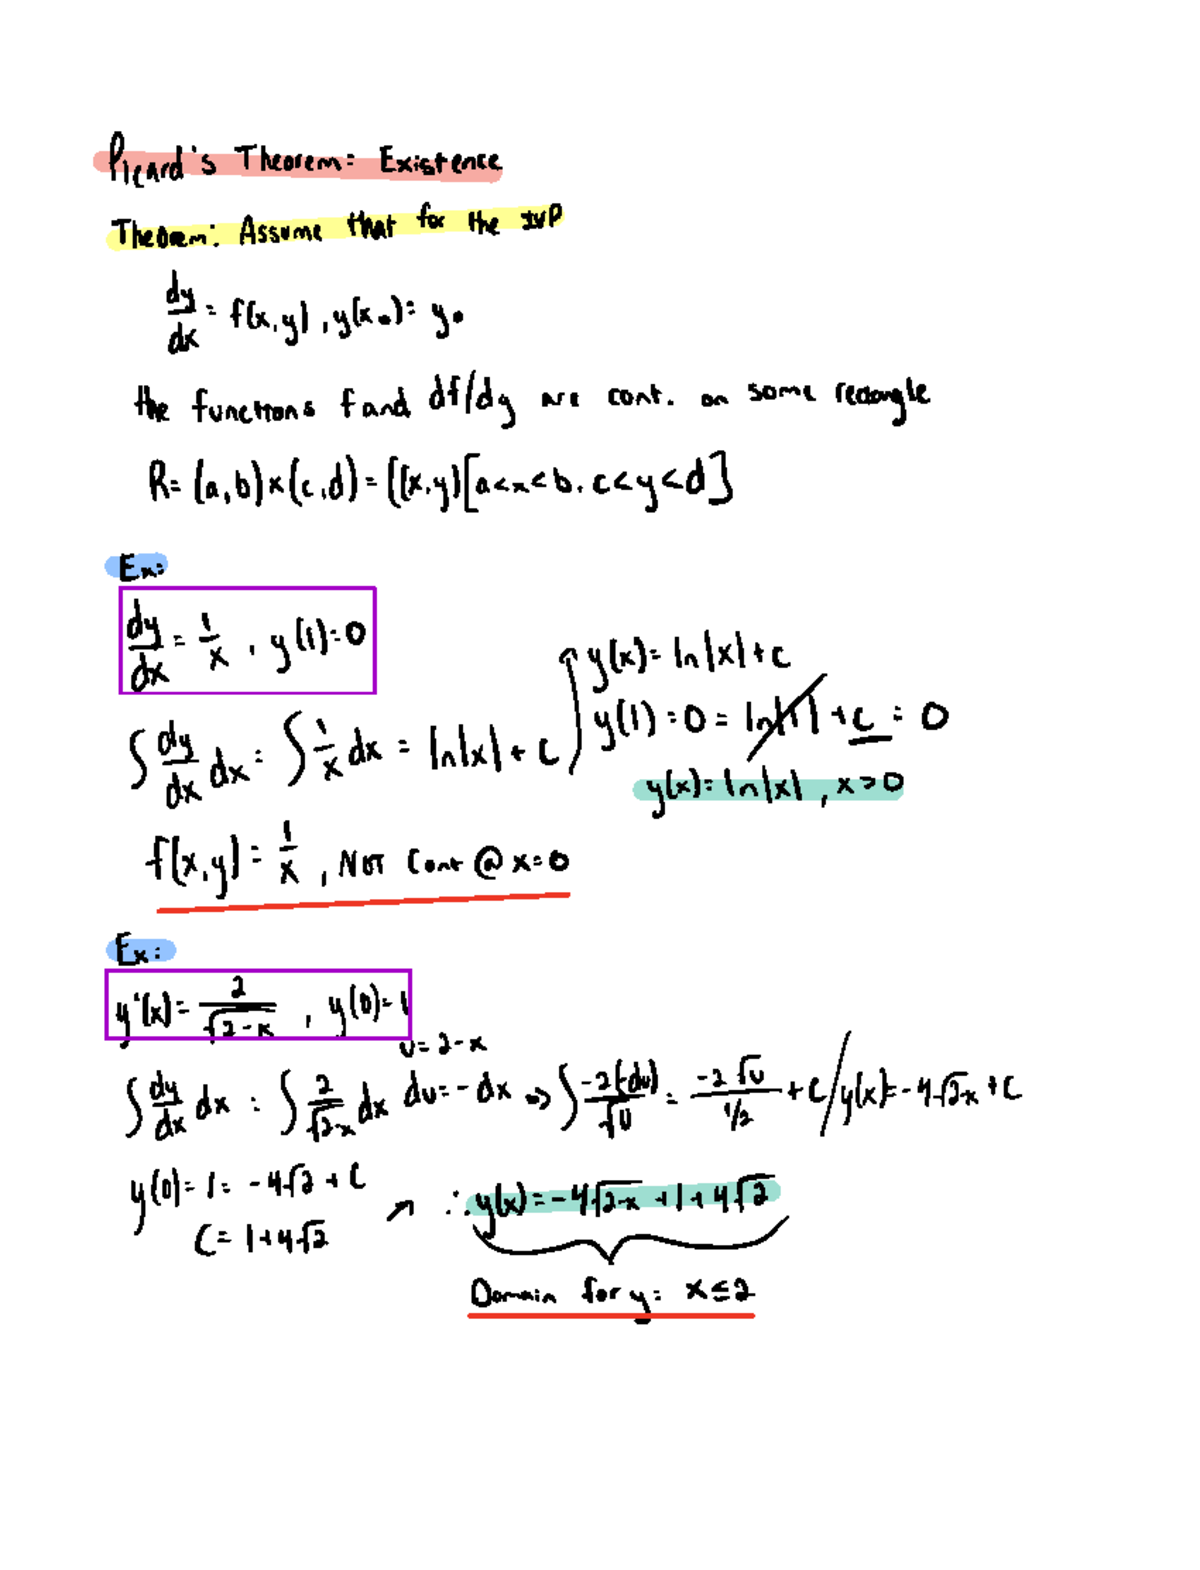 Picard's Theorem: Existence
Theorem: Assume that for the IVP
dy/dx = f(x,y), y(x₀) = y₀
the functions f and df/dy are cont. on some rectangle
R = (a,b)×(c,d) = {(x,y)[a<x<b, c<y<d]
Ex:
dy/dx = 1/x, y(1)=0
∫ dy/dx dx = ∫ 1/x dx = ln|x| + C
y(x) = ln|x| + C
y(1) = 0 = ln|1| + C = 0
y(x) = ln|x|, x>0
f(x,y) = 1/x, NOT Cont @ x=0
Ex:
y'(x) = 2/√(2-x), y(0)=1
∫ dy/dx dx = ∫ 2/√(2-x) dx
u = 2-x
du = -dx ⇒ ∫ -2(-du)/√u = -2√u/(1/2) + C / y(x) = -4√(2-x) + C
y(0) = 1 = -4√2 + C
C = 1+4√2
↗ ∴ y(x) = -4√(2-x) + 1 + 4√2
Domain for y: x≤2